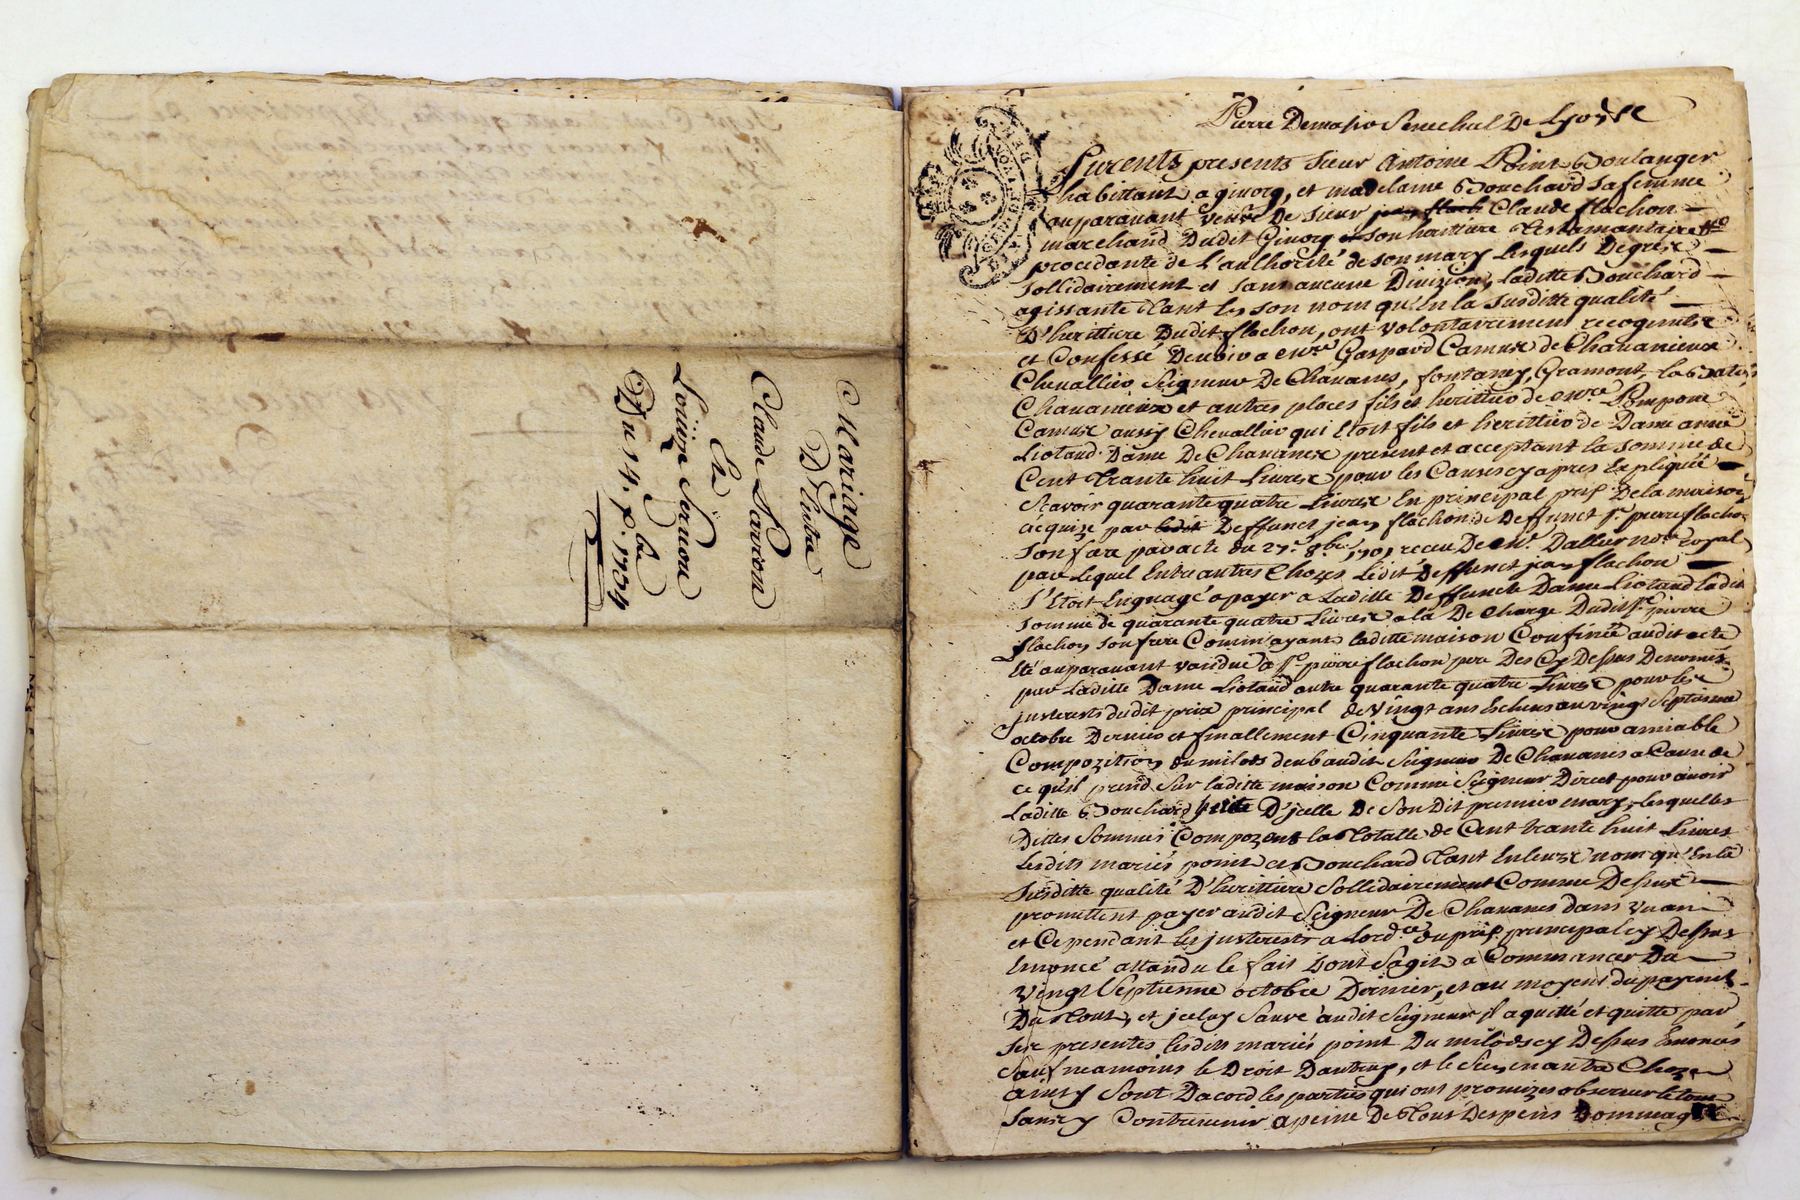 Mariage
D'Entre
Claude Pavion
Et
Loüize Seruon
Du 14.e 9.bre 1704
Pierre Demasso Senechal De Lyon
GEN DE LYON
furents presents sieur Antoine Point Boulanger
habittant a giuorg, et madelaine Bouchard sa femme
auparauant veufve De sieur Claude flachon
marchand Dudit Giuorg et son heritiere testamantaire
procedante de l'authorité de son mary lesquels De gré
sollidairement et sans aucune Division, laditte Bouchard
agissante tant En son nom qu'En la susditte qualité
D'herittiere Dudit flachon, ont volontairement recogneu
et Confessé Deuoir a Gaspard Camus de Chauanieux
Cheuallier Seigneur De Chauanes, fontanes, Gramont, la
Chauanieux et autres places fils et herittier de Pompone
Camus aussy Cheuallier qui Etoit fils et herittier de Dame anne
Liotaud Dame De Chauanes present et acceptant la somme de
Cent trante huit Livres pour les Causes cy apres Expliquée
Scavoir quarante quatre Livres En principal prix De la maison
acquize par Deffunct jean flachon de Deffunct Sr. pierre flachon
son frere par acte du 27.e 8bre 1701 receu De Me. Dallier nore. royal
par Lequel Entre autres Choses Ledit Deffunct jean flachon
s'Etoit Engagé a payer a Laditte Deffuncte Dame Liotaud ladite
somme de quarante quatre Livres a la De Charge Dudit Sr. pierre
flachon son frere Comm'ayant laditte maison Confinée audit acte
Eté auparauant vandue a Sr. pierre flachon pere Des Cy Dessus Denomés
par Laditte Dame Liotaud autre quarante quatre Livres pour les
jnterests dudit prix principal de vingt ans Echeus au vingt Septieme
octobre Dernier et finallement Cinquante Livres pour amiable
Compozition du milods deub audit Seigneur De Chauanes a Cause de
ce qu'il prend sur laditte maison Comme Seigneur Direct pour auoir
Laditte Bouchard D'jcelle De Son Dit premier mary, Lesquelles
Dittes Sommes Compozent la totalle de Cent trante huit Livres
Lesdits mariés point et Bouchard tant En leurs nom qu'En la
susditte qualité D'herittiere Sollidairement Comme Dessus
promettent payer audit Seigneur De Chauanes dans vn an
et Cependant les jnterests a l'ordce. du prix principal cy Dessus
Enoncé attandu le fait Dont s'agit a Commancer Du
vingt Septienne octobre Dernier, et au moyens du payemt.
Du tout, et jceluy Sauve audit Seigneur jl a quitté et quitte par
ses presentes lesdits mariés point Du milods cy Dessus Enoncés
Sauf neamoins le Droit D'autruy, et le Sien en autre Choze
ainsy Sont D'acord les parties qui ont promizes observer le tout
sans y Contreuenir a peine De tous Despens Dommages